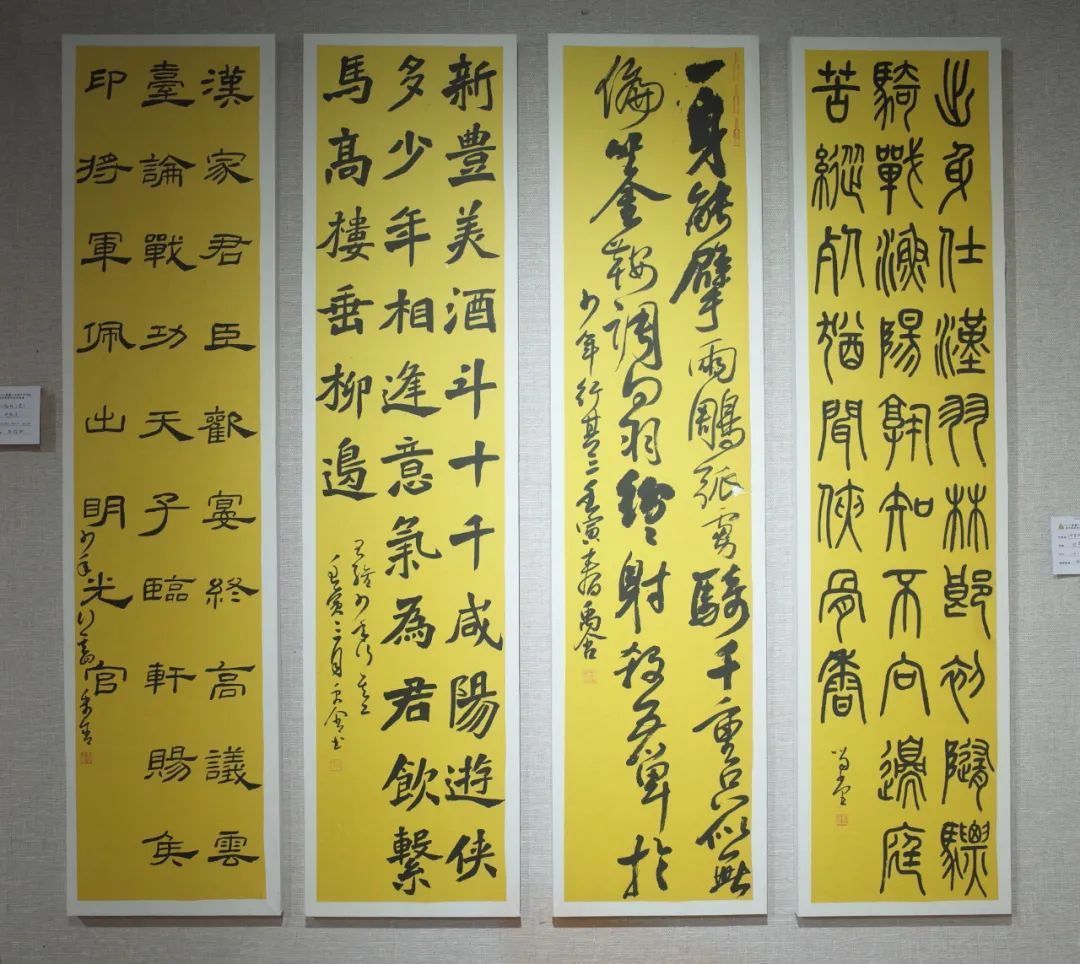 出身仕漢羽林郎初隨驃
騎戰漁陽孰知不向邊庭
苦縱死猶聞俠骨香
一身能擘兩鵰弧虜騎千重只似無
偏坐金鞍調白羽紛紛射殺五單於
少年行其三壬寅春
新豊美酒斗十千咸陽遊俠
多少年相逢意氣為君飲繫
馬高樓垂柳邊
王維少年行其一
壬寅三月
漢家君臣歡宴終高議雲
臺論戰功天子臨軒賜侯
印將軍佩出明光官
少年行